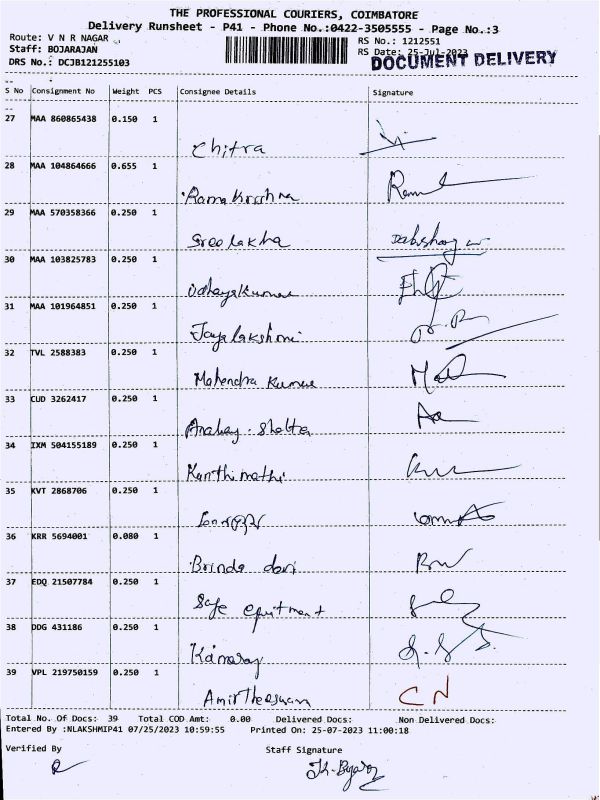 THE PROFESSIONAL COURIERS, COIMBATORE
Delivery Runsheet - P41 - Phone No.:0422-3505555 - Page No.:3
Route: V N R NAGAR
RS No.: 1212551
Staff: BOJARAJAN
RS Date: 25-Jul-2023
DOCUMENT DELIVERY
DRS No.: DCJB121255103
S No Consignment No Weight PCS Consignee Details Signature
27 MAA 860865438 0.150 1
Chitra
28 MAA 104864666 0.655 1
Rama Krishna
29 MAA 570358366 0.250 1
Sree lakha
30 MAA 103825783 0.250 1
Udhayakumar
31 MAA 101964851 0.250 1
Jayalakshmi
32 TVL 2588383 0.250 1
Mahendra Kumar
33 CUD 3262417 0.250 1
34 IXM 504155189 0.250 1
Kanthimathi
35 KVT 2868706 0.250 1
36 KRR 5694001 0.080 1
Brinda devi
37 EDQ 21507784 0.250 1
Safe
38 DDG 431186 0.250 1
Kamaraj
39 VPL 219750159 0.250 1
Amirtheeswaran CN
Total No. Of Docs: 39 Total COD Amt: 0.00 Delivered Docs: Non Delivered Docs:
Entered By :NLAKSHMIP41 07/25/2023 10:59:55 Printed On: 25-07-2023 11:00:18
Verified By Staff Signature